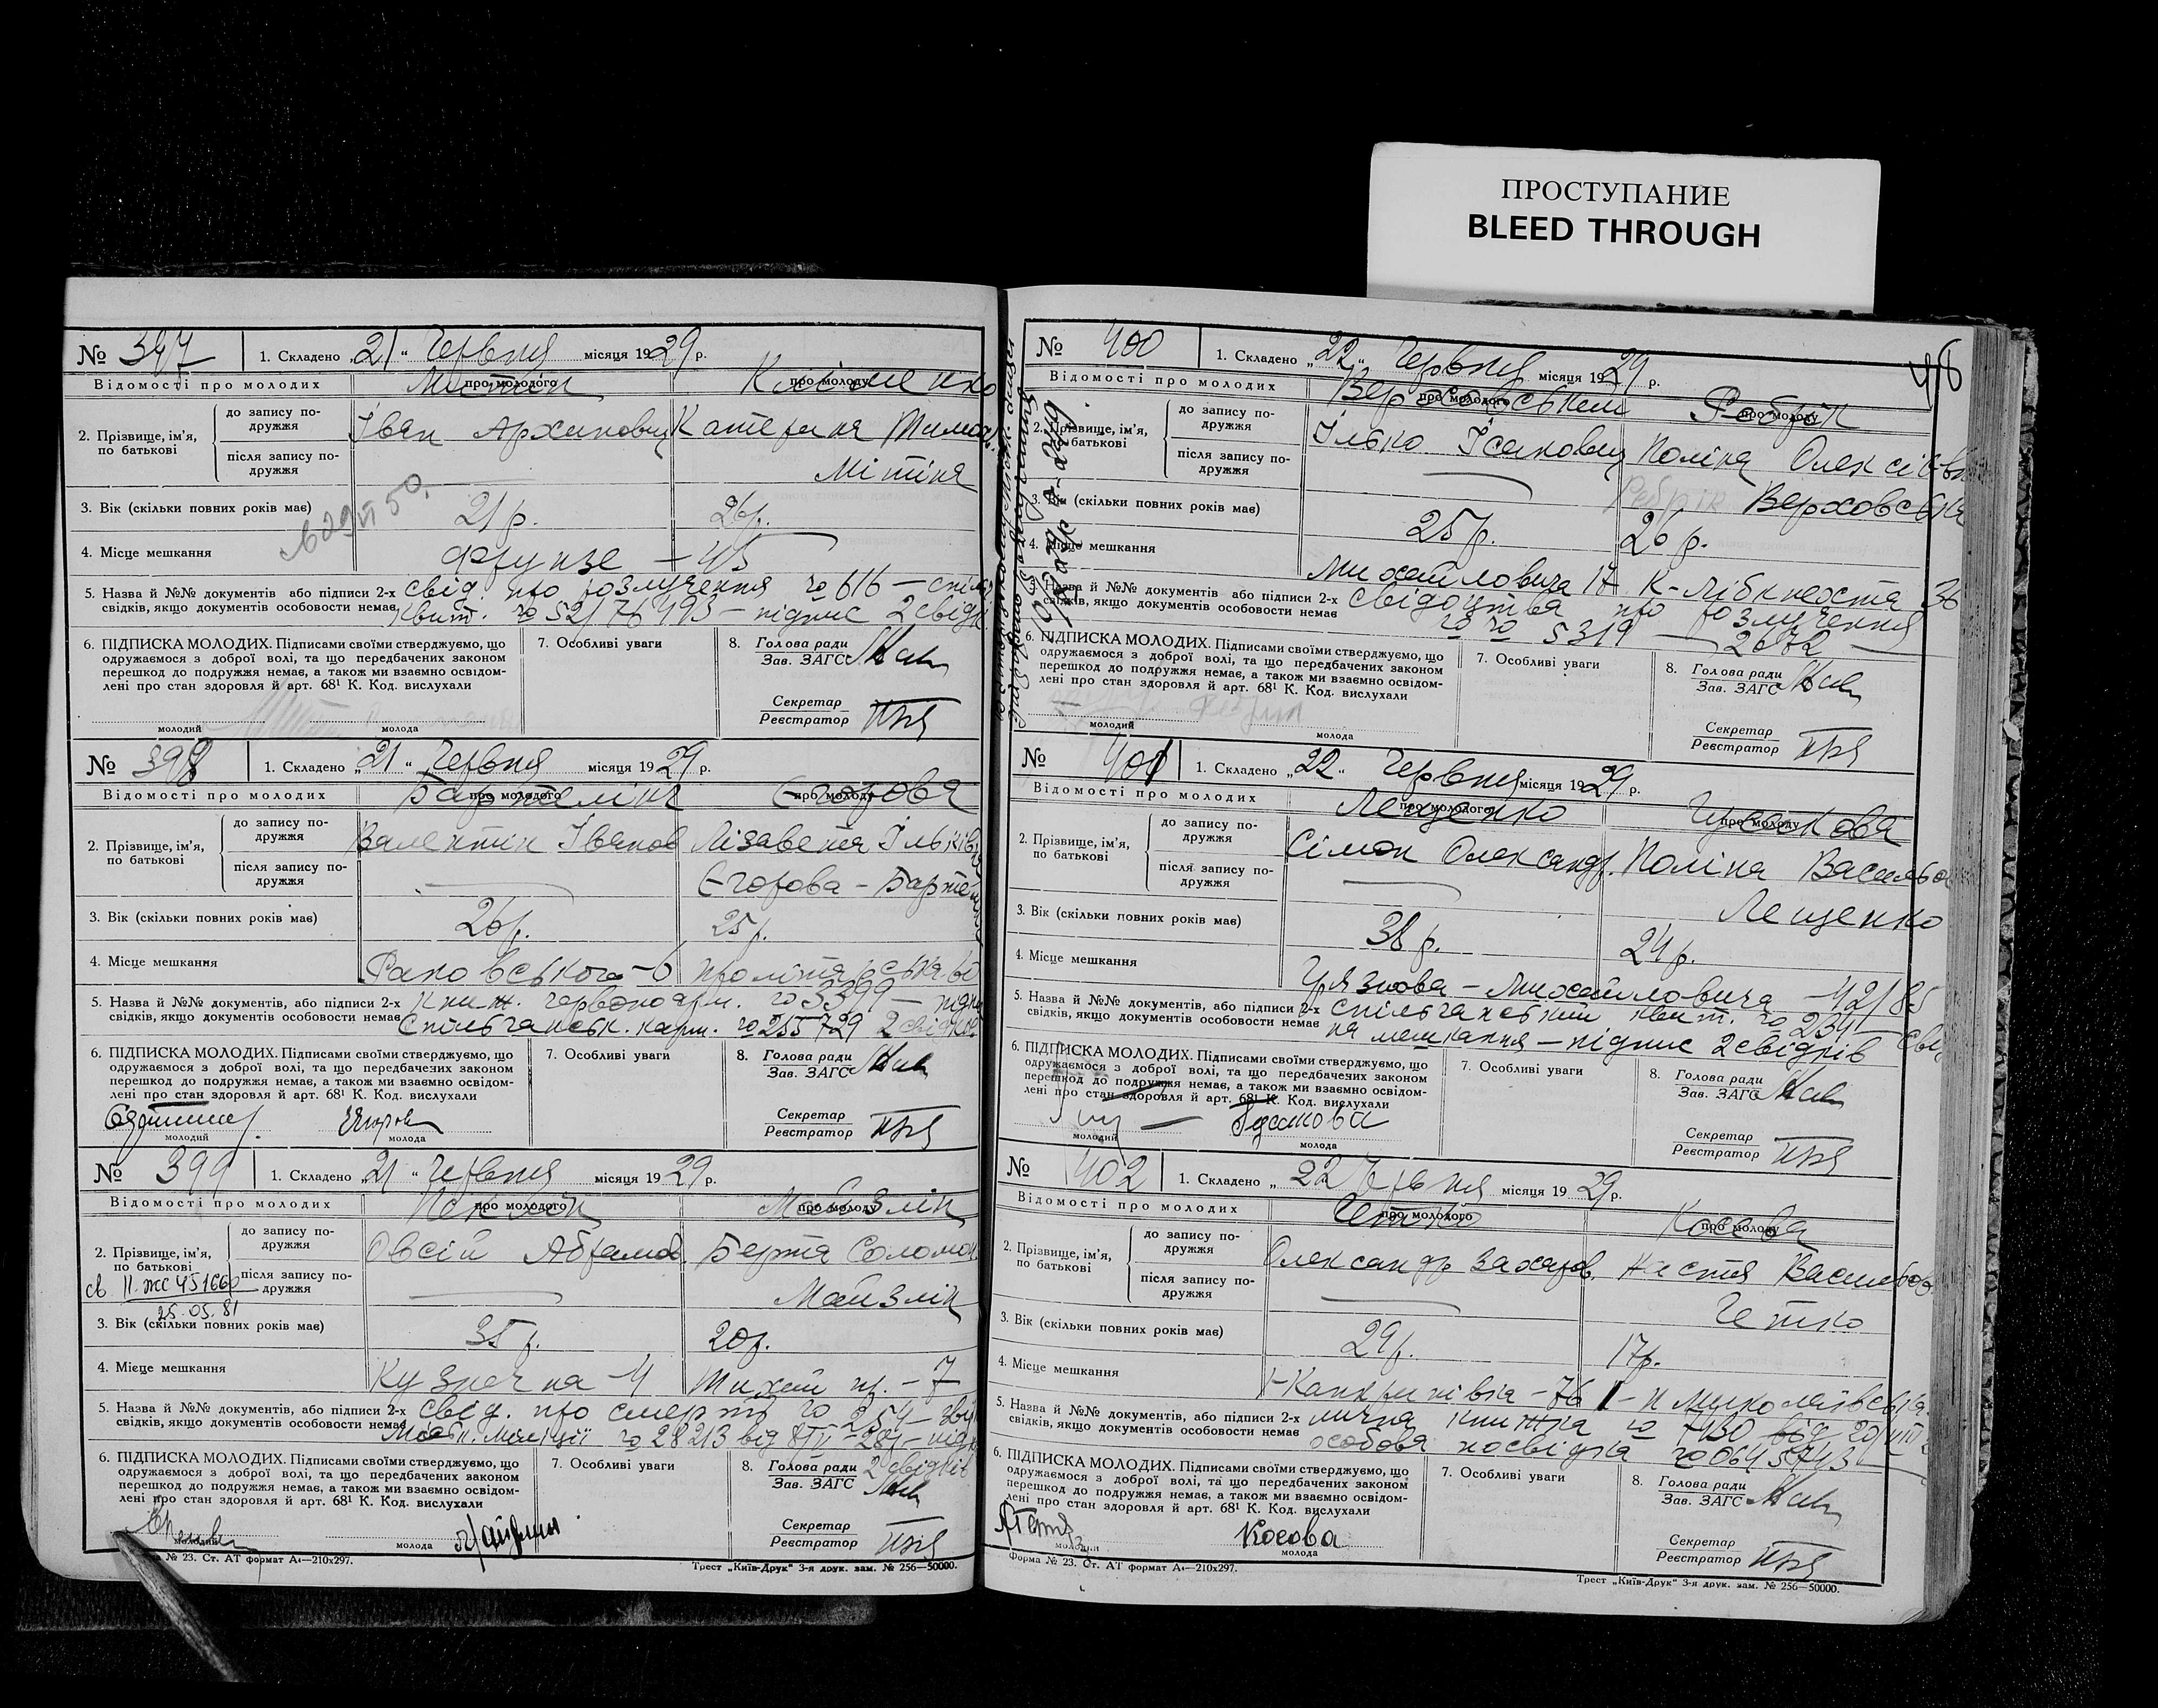 ПРОСТУПАНИЕ
BLEED THROUGH
№ 397 1. Складено „21“ Червня місяця 1929 р.
Відомості про молодих про молодого про молоду
Мітін Кліменко
2. Прізвище, ім'я, по батькові
до запису подружжя Іван Архипович Катерина Тимоф.
після запису подружжя Мітіна
3. Вік (скільки повних років має) 21 р. 26 р.
4. Місце мешкання Фрунзе – 45
5. Назва й №№ документів або підписи 2-х свід. про розлучення № 616 — спілк
свідків, якщо документів особовости немає квит. № 52/76493 – підпис 2 свідк.
6. ПІДПИСКА МОЛОДИХ. Підписами своїми стверджуємо, що
одружаємося з доброї волі, та що передбачених законом
перешкод до подружжя немає, а також ми взаємно освідом-
лені про стан здоровля й арт. 68¹ К. Код. вислухали
7. Особливі уваги
8. Голова ради
Зав. ЗАГС
Секретар
Реєстратор
молодий молода
№ 398 1. Складено „21“ Червня місяця 1929 р.
Відомості про молодих про молодого про молоду
Бартелінк Єгорова
2. Прізвище, ім'я, по батькові
до запису подружжя Валентін Іванов Лізавета Ільківна
після запису подружжя Єгорова – Барте
3. Вік (скільки повних років має) 26 р. 25 р.
4. Місце мешкання Раковського – 6
5. Назва й №№ документів, або підписи 2-х книж. червоноарм. № 5399 –
свідків, якщо документів особовости немає Спільчанськ. карт. № 255729 2 свідків
6. ПІДПИСКА МОЛОДИХ. Підписами своїми стверджуємо, що
одружаємося з доброї волі, та що передбачених законом
перешкод до подружжя немає, а також ми взаємно освідом-
лені про стан здоровля й арт. 68¹ К. Код. вислухали
7. Особливі уваги
8. Голова ради
Зав. ЗАГС
Секретар
Реєстратор
молодий молода
№ 399 1. Складено „21“ Червня місяця 1929 р.
Відомості про молодих про молодого про молоду
Майзлін
2. Прізвище, ім'я, по батькові
до запису подружжя Овсій Абрамов. Берта Соломон.
св. II-ЖС 451660
25.05.81
після запису подружжя Майзлін
3. Вік (скільки повних років має) 35 р. 20 р.
4. Місце мешкання Кузнечна – 4 Тихий п. – 7
5. Назва й №№ документів, або підписи 2-х свід. про смерть № 254 –
свідків, якщо документів особовости немає міліції № 28213 від 8/IV – 28
6. ПІДПИСКА МОЛОДИХ. Підписами своїми стверджуємо, що
одружаємося з доброї волі, та що передбачених законом
перешкод до подружжя немає, а також ми взаємно освідом-
лені про стан здоровля й арт. 68¹ К. Код. вислухали
7. Особливі уваги
8. Голова ради 2 свідків
Зав. ЗАГС
Секретар
Реєстратор
молодий молода
№ 23. Ст. АТ формат А₄—210х297. Трест „Київ-Друк“ 3-я друк. зам. № 256—50000.
№ 400 1. Складено „22“ Червня місяця 1929 р.
Відомості про молодих про молодого про молоду
Верховський Ребрік
2. Прізвище, ім'я, по батькові
до запису подружжя Ілько Ісакович Поліна Олексіївн
після запису подружжя Ребрік Верховська
3. Вік (скільки повних років має) 25 р. 26 р.
4. Місце мешкання Михайловича 17 К-Лібкнехта 36
5. Назва й №№ документів або підписи 2-х свідоцтва про розлучення
свідків, якщо документів особовости немає № № 5319 — 2672 —
6. ПІДПИСКА МОЛОДИХ. Підписами своїми стверджуємо, що
одружаємося з доброї волі, та що передбачених законом
перешкод до подружжя немає, а також ми взаємно освідом-
лені про стан здоровля й арт. 68¹ К. Код. вислухали
7. Особливі уваги
8. Голова ради
Зав. ЗАГС
Секретар
Реєстратор
молодий молода
№ 401 1. Складено „22“ Червня місяця 1929 р.
Відомості про молодих про молодого про молоду
Лещенко Гусакова
2. Прізвище, ім'я, по батькові
до запису подружжя Сімон Олександр. Поліна Васильов
після запису подружжя Лещенко
3. Вік (скільки повних років має) 38 р. 24 р.
4. Місце мешкання Михайловича – 42/85
5. Назва й №№ документів, або підписи 2-х спільчанський квит. № 234 —
свідків, якщо документів особовости немає на мешкання – підпис 2 свідків
6. ПІДПИСКА МОЛОДИХ. Підписами своїми стверджуємо, що
одружаємося з доброї волі, та що передбачених законом
перешкод до подружжя немає, а також ми взаємно освідом-
лені про стан здоровля й арт. 68¹ К. Код. вислухали
7. Особливі уваги
8. Голова ради
Зав. ЗАГС
Секретар
Реєстратор
Гусакова
молодий молода
№ 402 1. Складено „22 Червня місяця 1929 р.
Відомості про молодих про молодого про молоду
Четко Косова
2. Прізвище, ім'я, по батькові
до запису подружжя Олександр Захаров. Настя Васильов
після запису подружжя Четко
3. Вік (скільки повних років має) 29 р. 17 р.
4. Місце мешкання
5. Назва й №№ документів, або підписи 2-х книжка № 7430 від 20/VIII
свідків, якщо документів особовости немає особова посвідка № 0645743
6. ПІДПИСКА МОЛОДИХ. Підписами своїми стверджуємо, що
одружаємося з доброї волі, та що передбачених законом
перешкод до подружжя немає, а також ми взаємно освідом-
лені про стан здоровля й арт. 68¹ К. Код. вислухали
7. Особливі уваги
8. Голова ради
Зав. ЗАГС
Секретар
Реєстратор
Косова
молодий молода
Форма № 23. Ст. АТ формат А₄—210х297. Трест „Київ-Друк“ 3-я друк. зам. № 256—50000.